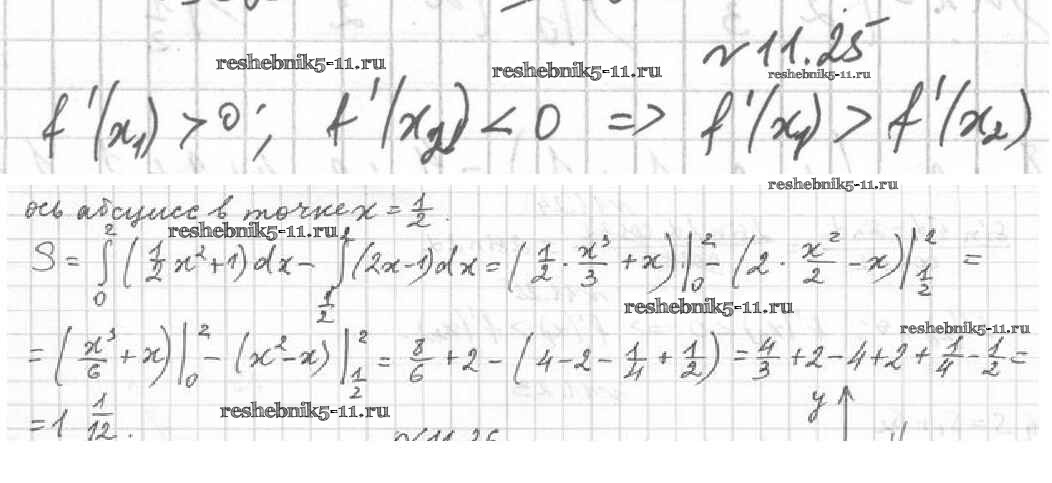 reshebnik5-11.ru
reshebnik5-11.ru
№ 11.25
reshebnik5-11.ru
f'(x₁) > 0; f'(x₂) < 0 => f'(x₁) > f'(x₂)
reshebnik5-11.ru
ось абсцисс в точке x = 1/2.
reshebnik5-11.ru
S = ∫₀² (1/2 x² + 1) dx - ∫_{1/2}^{2} (2x - 1) dx = (1/2 · x³/3 + x) |₀² - (2 · x²/2 - x) |_{1/2}^{2} =
reshebnik5-11.ru
reshebnik5-11.ru
= (x³/6 + x) |₀² - (x² - x) |_{1/2}^{2} = 8/6 + 2 - (4 - 2 - 1/4 + 1/2) = 4/3 + 2 - 4 + 2 + 1/4 - 1/2 =
reshebnik5-11.ru
y
= 1 1/12.